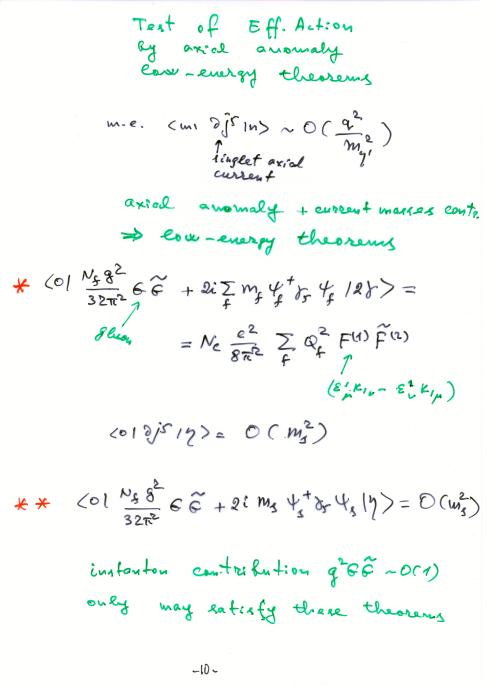 Test of Eff. Action
by axial anomaly
low-energy theorems
m.e. <m| ∂j⁵ |n> ~ O(q²/m²_η')
↑
singlet axial
current
axial anomaly + current masses contr.
⇒ low-energy theorems
* <0| N_f g²/32π² G G̃ + 2i Σ_f m_f ψ_f⁺ γ₅ ψ_f |2γ> =
gluon
= N_c e²/8π² Σ_f Q_f² F⁽¹⁾ F̃⁽²⁾
(ε¹_μ K_1ν − ε¹_ν K_1μ)
<0| ∂j⁵ |η> = O(m_s²)
** <0| N_f g²/32π² G G̃ + 2i m_s ψ_s⁺ γ₅ ψ_s |η> = O(m_s²)
instanton contribution g²GG̃ ~ O(1)
only may satisfy these theorems
-10-